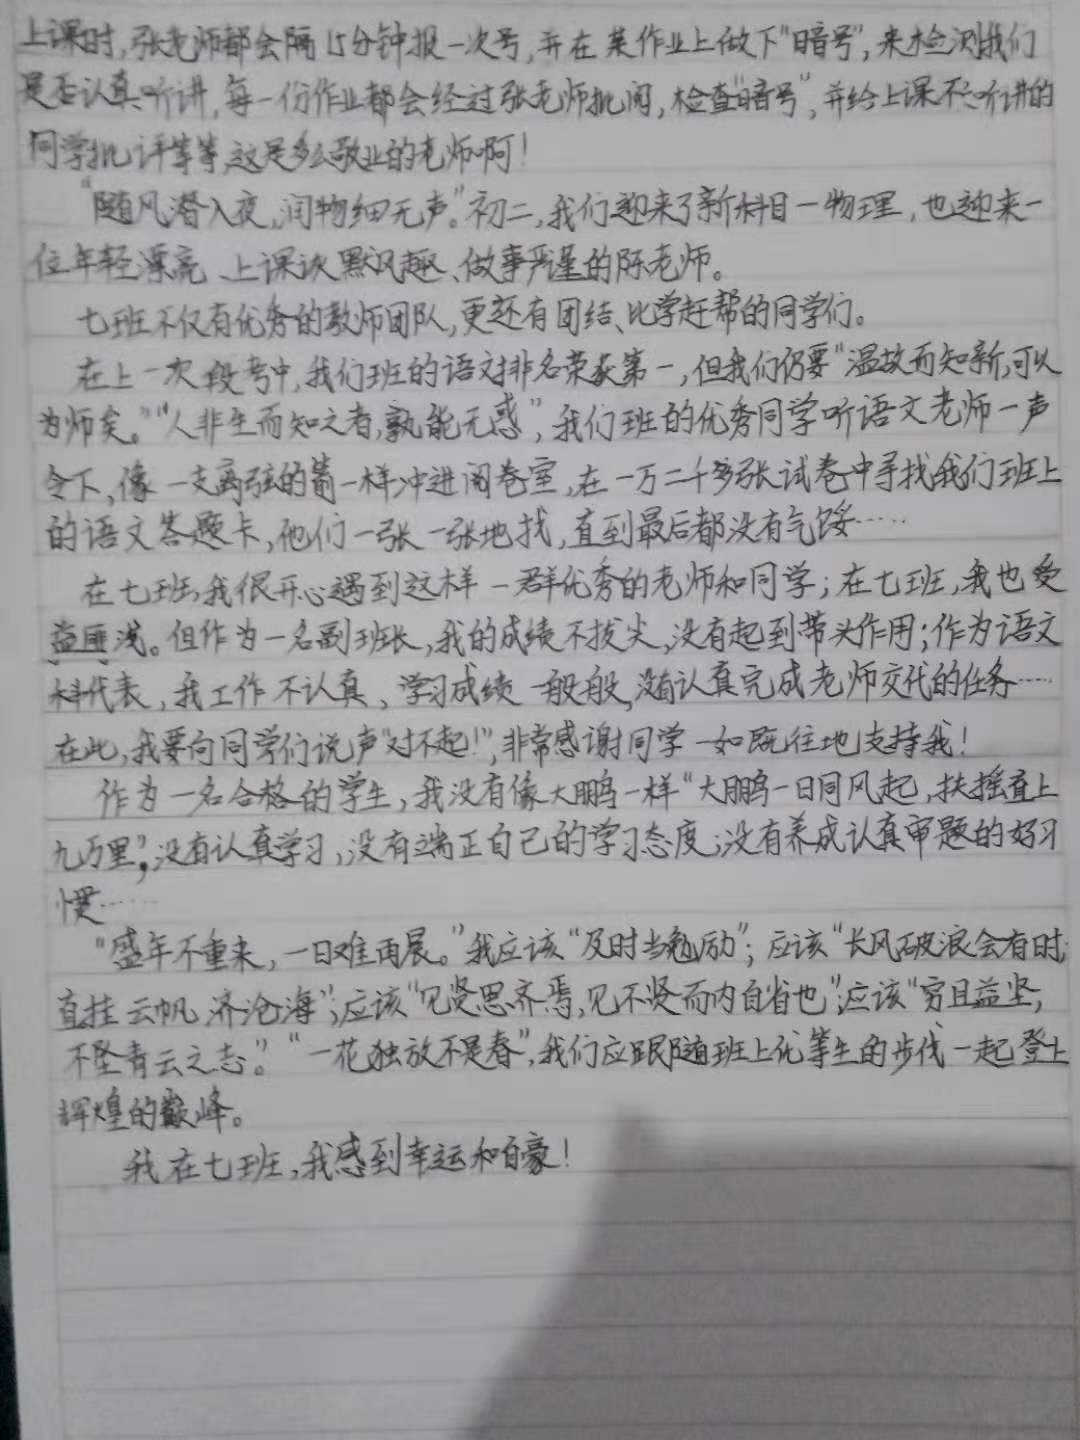 上课时,张老师都会隔15分钟报一次号,并在某作业上做下“暗号”,来检测我们
是否认真听讲,每一份作业都会经过张老师批阅,检查“暗号”,并给上课不听讲的
同学批评等等,这是多么敬业的老师啊!
“随风潜入夜,润物细无声。”初二,我们迎来了新科目—物理,也迎来一
位年轻漂亮、上课诙默风趣、做事严谨的陈老师。
七班不仅有优秀的教师团队,更还有团结、比学赶帮的同学们。
在上一次段考中,我们班的语文排名荣获第一,但我们仍要“温故而知新,可以
为师矣。”“人非生而知之者,孰能无惑”,我们班的优秀同学听语文老师一声
令下,像一支离弦的箭一样冲进阅卷室,在一万二千多张试卷中寻找我们班上
的语文答题卡,他们一张一张地找,直到最后都没有气馁……
在七班,我很开心遇到这样一群优秀的老师和同学;在七班,我也受
益匪浅。但作为一名副班长,我的成绩不拔尖,没有起到带头作用;作为语文
科代表,我工作不认真、学习成绩一般般,没有认真完成老师交代的任务……
在此,我要向同学们说声“对不起!”,非常感谢同学一如既往地支持我!
作为一名合格的学生,我没有像大鹏一样“大鹏一日同风起,扶摇直上
九万里”,没有认真学习,没有端正自己的学习态度,没有养成认真审题的好习
惯……
“盛年不重来,一日难再晨。”我应该“及时当勉励”;应该“长风破浪会有时,
直挂云帆济沧海”;应该“见贤思齐焉,见不贤而内自省也”;应该“穷且益坚,
不坠青云之志。”“一花独放不是春”,我们应跟随班上优等生的步伐一起登上
辉煌的巅峰。
我在七班,我感到幸运和自豪!